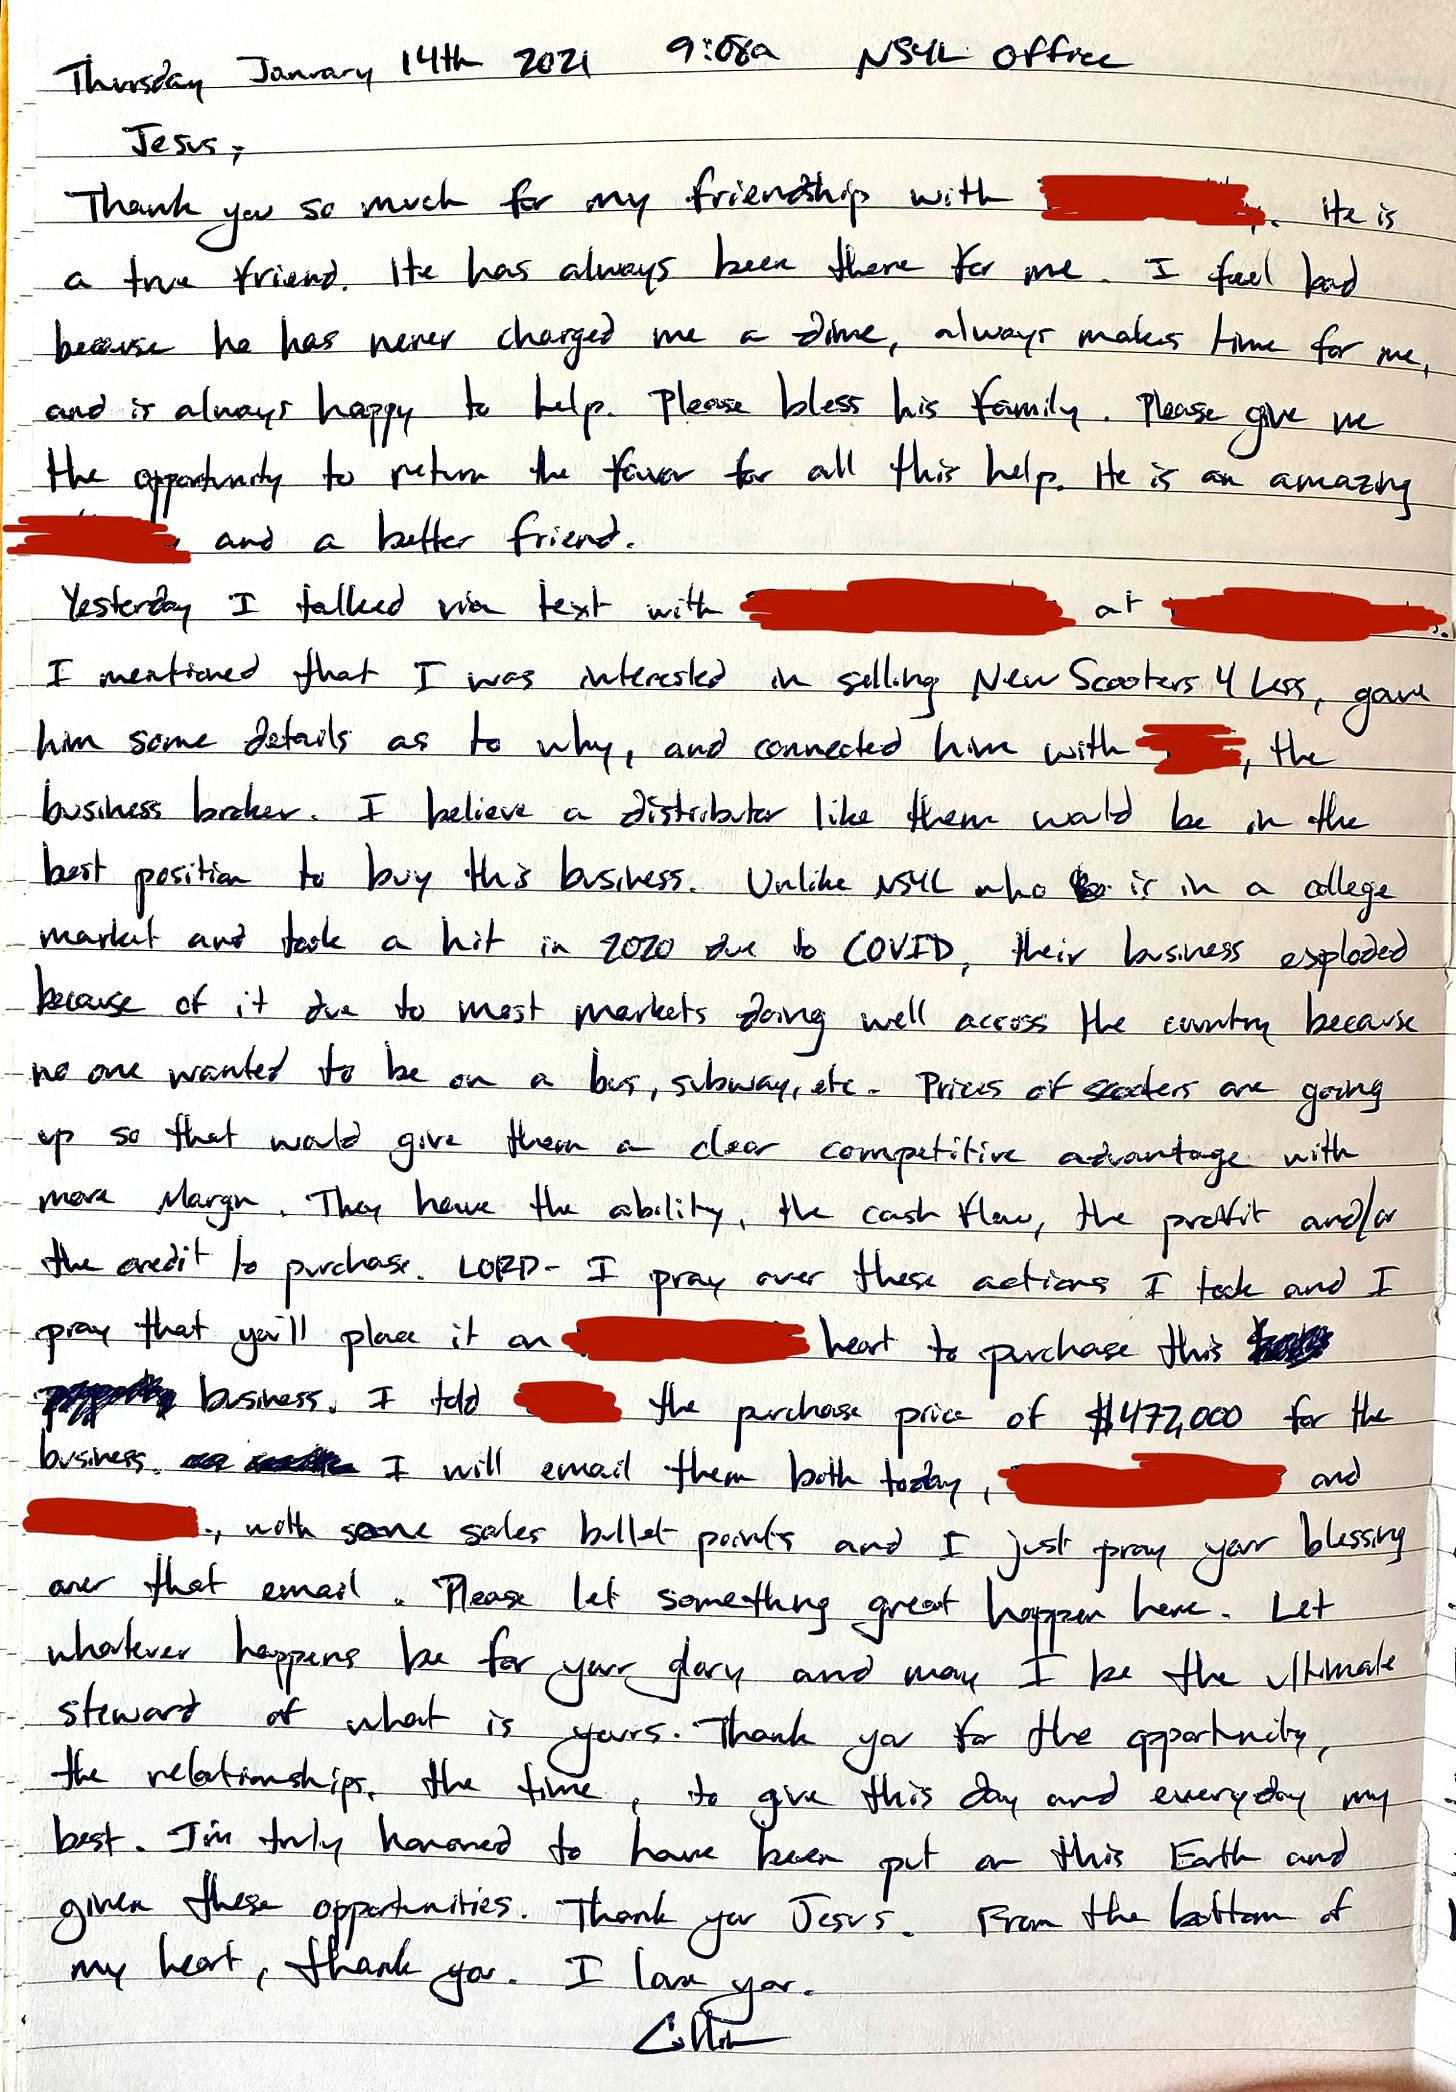 Thursday January 14th 2021 9:08a NS4L Office
Jesus,
Thank you so much for my friendship with . He is
a true friend. He has always been there for me. I feel bad
because he has never charged me a dime, always makes time for me,
and is always happy to help. Please bless his family. Please give me
the opportunity to return the favor for all this help. He is an amazing
and a better friend.
Yesterday I talked via text with at .
I mentioned that I was interested in selling New Scooters 4 Less, gave
him some details as to why, and connected him with , the
business broker. I believe a distributor like them would be in the
best position to buy this business. Unlike NS4L who is in a college
market and took a hit in 2020 due to COVID, their business exploded
because of it due to most markets doing well across the country because
no one wanted to be on a bus, subway, etc. Prices of scooters are going
up so that would give them a clear competitive advantage with
more Margin. They have the ability, the cash flow, the profit and/or
the credit to purchase. LORD- I pray over these actions I took and I
pray that you'll place it on heart to purchase this
business. I told the purchase price of $472,000 for the
business. I will email them both today, and
, with some sales bullet points and I just pray your blessing
over that email. Please let something great happen here. Let
whatever happens be for your glory and may I be the ultimate
steward of what is yours. Thank you for the opportunity,
the relationships, the time, to give this day and everyday my
best. I'm truly honored to have been put on this Earth and
given these opportunities. Thank you Jesus. From the bottom of
my heart, thank you. I love you.